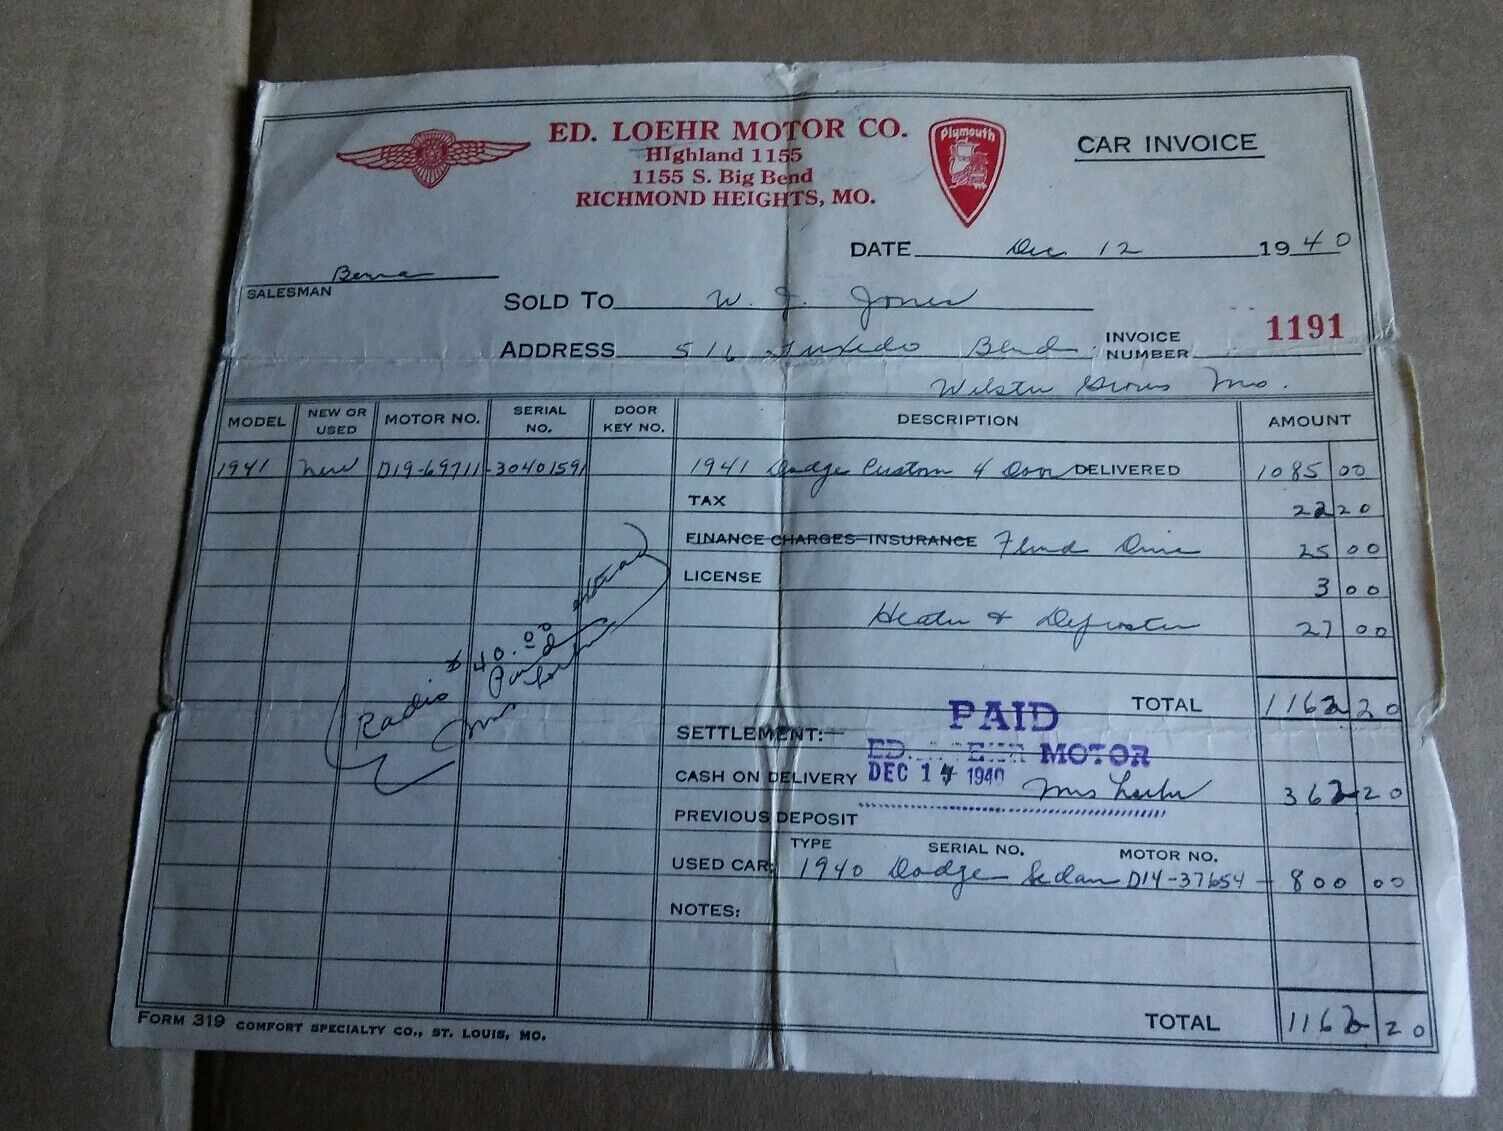 ED. LOEHR MOTOR CO.
HIghland 1155
1155 S. Big Bend
RICHMOND HEIGHTS, MO.
Plymouth
CAR INVOICE
DATE Dec 12 1940
SALESMAN
SOLD TO W. J. Jones
ADDRESS 516 Tuxedo Blvd
INVOICE NUMBER 1191
Webster Groves Mo.
MODEL NEW OR USED MOTOR NO. SERIAL NO. DOOR KEY NO. DESCRIPTION AMOUNT
1941 New D19-69711 -30401591 1941 Dodge Custom 4 Door DELIVERED 1085 00
TAX 22 20
FINANCE CHARGES-INSURANCE Fluid Drive 25 00
LICENSE 3 00
Heater & Defroster 27 00
Radio $40.00
Paid
Mrs Loehr
TOTAL 1162 20
SETTLEMENT:
PAID
ED. LOEHR MOTOR
DEC 17 1940
CASH ON DELIVERY Mrs Loehr 362 20
PREVIOUS DEPOSIT
TYPE SERIAL NO. MOTOR NO.
USED CAR: 1940 Dodge Sedan D14-37654 - 800 00
NOTES:
TOTAL 1162 20
FORM 319 COMFORT SPECIALTY CO., ST. LOUIS, MO.